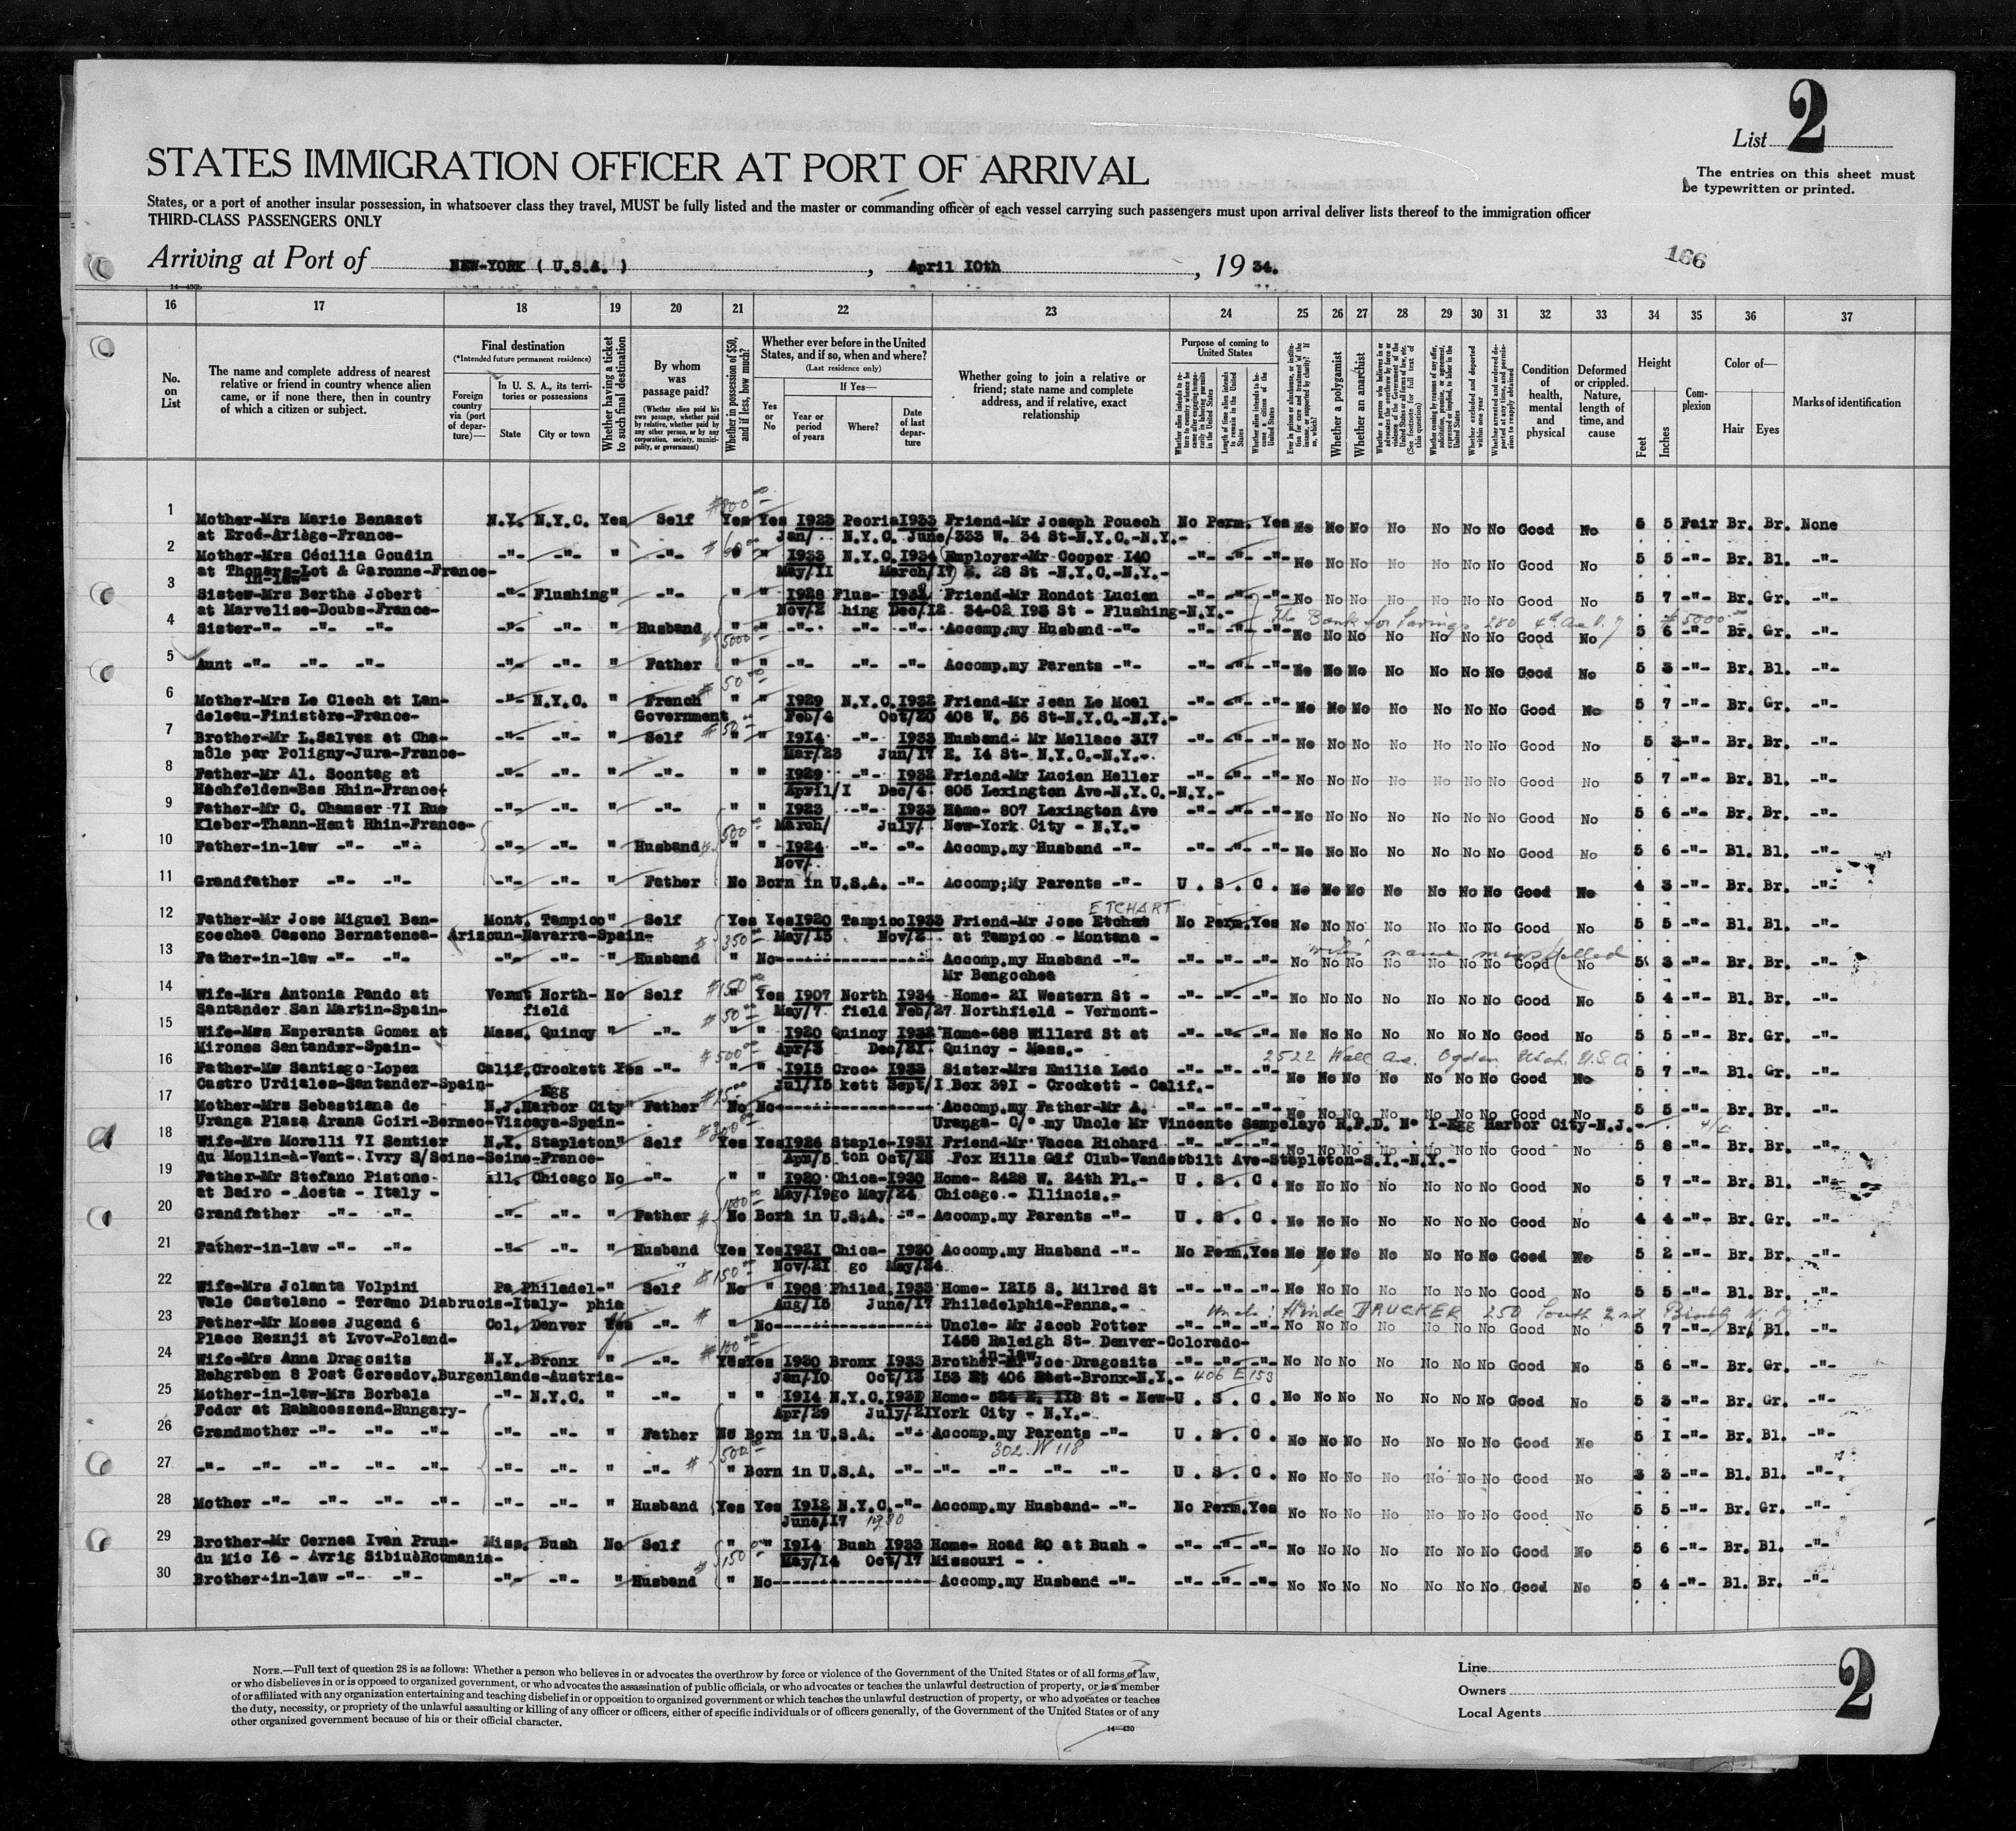 List 2
The entries on this sheet must
be typewritten or printed.
STATES IMMIGRATION OFFICER AT PORT OF ARRIVAL
States, or a port of another insular possession, in whatsoever class they travel, MUST be fully listed and the master or commanding officer of each vessel carrying such passengers must upon arrival deliver lists thereof to the immigration officer
THIRD-CLASS PASSENGERS ONLY
166
Arriving at Port of NEW-YORK ( U.S.A. ) , April 10th , 19 34.
14-430b
16 17 18 19 20 21 22 23 24 25 26 27 28 29 30 31 32 33 34 35 36 37
No. on List
The name and complete address of nearest relative or friend in country whence alien came, or if none there, then in country of which a citizen or subject.
Final destination (*Intended future permanent residence)
Foreign country via (port of departure)—
In U. S. A., its territories or possessions
State City or town
Whether having a ticket to such final destination
By whom was passage paid?
(Whether alien paid his own passage, whether paid by relative, whether paid by any other person, or by any corporation, society, municipality, or government)
Whether in possession of $50, and if less, how much?
Whether ever before in the United States, and if so, when and where?
(Last residence only)
If Yes—
Yes or No
Year or period of years
Where?
Date of last departure
Whether going to join a relative or friend; state name and complete address, and if relative, exact relationship
Purpose of coming to United States
Length of time alien intends to remain in the United States
Whether alien intends to become a citizen of the United States
Whether a polygamist
Whether an anarchist
Whether excluded and deported within one year
Condition of health, mental and physical
Deformed or crippled. Nature, length of time, and cause
Height
Feet Inches
Complexion
Color of—
Hair Eyes
Marks of identification
1 Mother-Mrs Marie Benazet N.Y. N.Y.C. Yes Self $800 Yes Yes 1923 Peoria 1933 Friend-Mr Joseph Pouech No Perm. Yes No No No No No No No Good No 5 5 Fair Br. Br. None
at Ercé-Ariège-France- Jan/ N.Y.C. June/ 333 W. 34 St-N.Y.C.-N.Y.-
2 Mother-Mrs Cécilia Goudin -"- -"- " -"- $60 " 1933 N.Y.C. 1934 Employer-Mr Cooper 140 -"- -"- -"- No No No No No No No Good No 5 5 -"- Br. Bl. -"-
at Thouars-Lot & Garonne-France- May/11 March/17 E. 28 St -N.Y.C.-N.Y.-
in-law
3 Sister-Mrs Berthe Jobert -"- Flushing " -"- " " 1928 Flus- Friend-Mr Rondot Lucien -"- -"- -"- No No No No No No No Good No 5 7 -"- Br. Gr. -"-
at Marvelise-Doubs-France- Nov/2 hing Dec/12 34-02 193 St - Flushing-N.Y.-
The Bank for Savings 280 4th Ave N.Y $5000
4 Sister-"- -"- -"- -"- -"- " Husband $5000 " " -"- -"- -"- Accomp.my Husband -"- -"- -"- -"- No No No No No No No Good No 5 6 -"- Br. Gr. -"-
5 Aunt -"- -"- -"- -"- -"- " Father " " -"- -"- -"- Accomp.my Parents -"- -"- -"- -"- No No No No No No No Good No 5 3 -"- Br. Bl. -"-
6 Mother-Mrs Le Clech at Lan- -"- N.Y.C. " French $50 " " 1929 N.Y.C. 1932 Friend-Mr Jean Le Moal -"- -"- -"- No No No No No No No Good No 5 7 -"- Br. Gr. -"-
deleau-Finistère-France- Government Feb/4 Oct/20 408 W. 56 St-N.Y.C.-N.Y.-
7 Brother-Mr L.Salvez at Cha- -"- -"- " Self $50 " " 1914 -"- 1933 Husband- Mr Mellace 317 -"- -"- -"- No No No No No No No Good No 5 3 -"- Br. Br. -"-
môle par Poligny-Jura-France- Mar/23 Jun/17 E. 14 St- N.Y.C.-N.Y.-
8 Father-Mr Al. Sonntag at -"- -"- " -"- " " 1929 -"- 1932 Friend-Mr Lucien Heller -"- -"- -"- No No No No No No No Good No 5 7 -"- Br. Bl. -"-
Hochfelden-Bas Rhin-France- April/1 Dec/4 805 Lexington Ave-N.Y.C.-N.Y.-
9 Father-Mr C. Chamser 71 Rue -"- -"- " -"- " " 1923 -"- 1933 Home- 807 Lexington Ave -"- -"- -"- No No No No No No No Good No 5 6 -"- Br. Br. -"-
Kleber-Thann-Haut Rhin-France- $500 March/ July/ New-York City - N.Y.-
10 Father-in-law -"- -"- -"- -"- " Husband " " 1924 -"- -"- Accomp.my Husband -"- -"- -"- -"- No No No No No No No Good No 5 6 -"- Bl. Bl. -"-
Nov/
11 Grandfather -"- -"- -"- -"- " Father No Born in U.S.A. -"- Accomp;My Parents -"- U . S . C . No No No No No No No Good No 4 3 -"- Br. Br. -"-
ETCHART
12 Father-Mr Jose Miguel Ben- Mont. Tampico " Self Yes Yes 1920 Tampico 1933 Friend-Mr Jose Etchat No Perm. Yes No No No No No No No Good No 5 5 -"- Bl. Bl. -"-
goechea Caseno Bernatenea- Arizcun-Navarra-Spain- $350 May/15 Nov/2 at Tampico - Montana -
13 Father-in-law -"- -"- -"- -"- " Husband " No Accomp.my Husband -"- -"- -"- -"- No No No No No No No Good No 5 3 -"- Br. Br. -"-
name misspelled
Mr Bengochea
14 Wife-Mrs Antonia Pando at Vermt North- No Self $150 " Yes 1907 North 1934 Home- 21 Western St - -"- -"- -"- No No No No No No No Good No 5 4 -"- Bl. Br. -"-
Santander San Martin-Spain- field May/7 field Feb/27 Northfield - Vermont-
15 Wife-Mrs Esperanta Gomez at Mass. Quincy " -"- $50 " " 1920 Quincy 1932 Home-688 Willard St at -"- -"- -"- No No No No No No No Good No 5 5 -"- Br. Gr. -"-
Mirones Santander-Spain- Apr/3 Dec/21 Quincy - Mass.-
2522 Wall Ave. Ogden Utah. U.S.A
16 Father-Mr Santiago Lopez Calif. Crockett Yes -"- $500 " " 1915 Croc- 1933 Sister-Mrs Emilia Ledo -"- -"- -"- No No No No No No No Good No 5 7 -"- Bl. Gr. -"-
Castro Urdiales-Santander-Spain- Jul/15 kett Sept/1 Box 391 - Crockett - Calif.-
Egg
17 Mother-Mrs Sebastiana de N.J. Harbor City " Father $25 No No Accomp.my Father-Mr A. -"- -"- -"- No No No No No No No Good No 5 5 -"- Br. Br. -"-
Uranga Plaza Arana Goiri-Bermeo-Vizcaya-Spain- Uranga- C/o my Uncle Mr Vincente Sampelayo R.F.D. N° 1-Egg Harbor City-N.J.-
18 Wife-Mrs Morelli 71 Sentier N.Y. Stapleton " Self $300 Yes Yes 1926 Staple- 1931 Friend-Mr Vacca Richard -"- -"- -"- No No No No No No No Good No 5 8 -"- Br. Br. -"-
du Moulin-à-Vent- Ivry S/Seine-Seine-France- Apr/5 ton Oct/28 Fox Hills Glf Club-Vandetbilt Ave-Stapleton-S.I.-N.Y.-
19 Father-Mr Stefano Pistone Ill. Chicago No -"- " " 1920 Chica- 1930 Home- 2428 W. 24th Pl.- U . S . C . No No No No No No No Good No 5 7 -"- Br. Bl. -"-
at Bairo - Aosta - Italy - May/19 go May/24 Chicago - Illinois.-
20 Grandfather -"- -"- -"- -"- " Father No Born in U.S.A. -"- Accomp.my Parents -"- U . S . C . No No No No No No No Good No 4 4 -"- Br. Gr. -"-
21 Father-in-law -"- -"- -"- -"- " Husband Yes Yes 1921 Chica- 1930 Accomp.my Husband -"- No Perm. Yes No No No No No No No Good No 5 2 -"- Br. Br. -"-
Nov/21 go May/24
22 Wife-Mrs Jolanta Volpini Pa Philadel- " Self $150 No " 1908 Philad. 1933 Home- 1215 S. Milred St -"- -"- -"- No No No No No No No Good No 5 5 -"- Bl. Br. -"-
Vale Castelano - Teramo Diabrucis-Italy- phia Aug/15 June/17 Philadelphia-Penna.-
Uncle: Hinde DRUCKER 250 South 2nd
23 Father-Mr Moses Jugend 6 Col. Denver Yes -"- " No Uncle- Mr Jacob Potter -"- -"- -"- No No No No No No No Good No 5 7 -"- Br. Bl. -"-
Place Reznji at Lvov-Poland- 1458 Raleigh St- Denver-Colorado-
in-law
24 Wife-Mrs Anna Dragosits N.Y. Bronx " -"- $100 Yes Yes 1930 Bronx 1933 Brother-Mr Joe Dragosits -"- -"- -"- No No No No No No No Good No 5 6 -"- Br. Gr. -"-
Rehgraben 8 Post Geresdov.Burgenlands-Austria- Jan/10 Oct/13 153 St 406 East-Bronx-N.Y.- 406 E 153
25 Mother-in-law-Mrs Borbala -"- N.Y.C. " -"- " " 1914 N.Y.C. Home- 118 St - New- U . S . C . No No No No No No No Good No 5 3 -"- Br. Gr. -"-
Fodor at Hungary- Apr/29 July/21 York City - N.Y.-
26 Grandmother -"- -"- -"- -"- -"- " Father No Born in U.S.A. -"- Accomp.my Parents -"- U . S . C . No No No No No No No Good No 5 1 -"- Br. Bl. -"-
$500 302 W 118
27 -"- -"- -"- -"- -"- -"- -"- " -"- " Born in U.S.A. -"- -"- -"- -"- -"- U . S . C . No No No No No No No Good No 3 3 -"- Bl. Bl. -"-
28 Mother -"- -"- -"- -"- -"- -"- " Husband Yes Yes 1912 N.Y.C. -"- Accomp.my Husband- -"- No Perm. Yes No No No No No No No Good No 5 5 -"- Br. Gr. -"-
June/17 1930
29 Brother-Mr Cernea Ivan Prun- Miss. Bush No Self " " 1914 Bush 1933 Home- Road 20 at Bush - -"- -"- -"- No No No No No No No Good No 5 6 -"- Br. Bl. -"-
du Mic 16 - Avrig Sibiu-Roumania- $150 May/14 Oct/17 Missouri -
30 Brother-in-law -"- -"- -"- -"- " Husband " No Accomp.my Husband -"- -"- -"- -"- No No No No No No No Good No 5 4 -"- Bl. Br. -"-
NOTE.—Full text of question 28 is as follows: Whether a person who believes in or advocates the overthrow by force or violence of the Government of the United States or of all forms of law,
or who disbelieves in or is opposed to organized government, or who advocates the assassination of public officials, or who advocates or teaches the unlawful destruction of property, or is a member
of or affiliated with any organization entertaining and teaching disbelief in or opposition to organized government or which teaches the unlawful destruction of property, or who advocates or teaches
the duty, necessity, or propriety of the unlawful assaulting or killing of any officer or officers, either of specific individuals or of officers generally, of the Government of the United States or of any
other organized government because of his or their official character.
14-430
Line
Owners
Local Agents
2